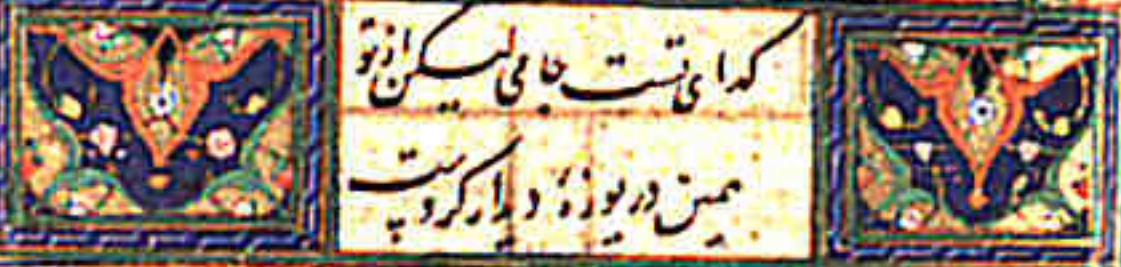 گدای تست جامی لیکن از تو
همین دریوزهٔ دیدار کردست